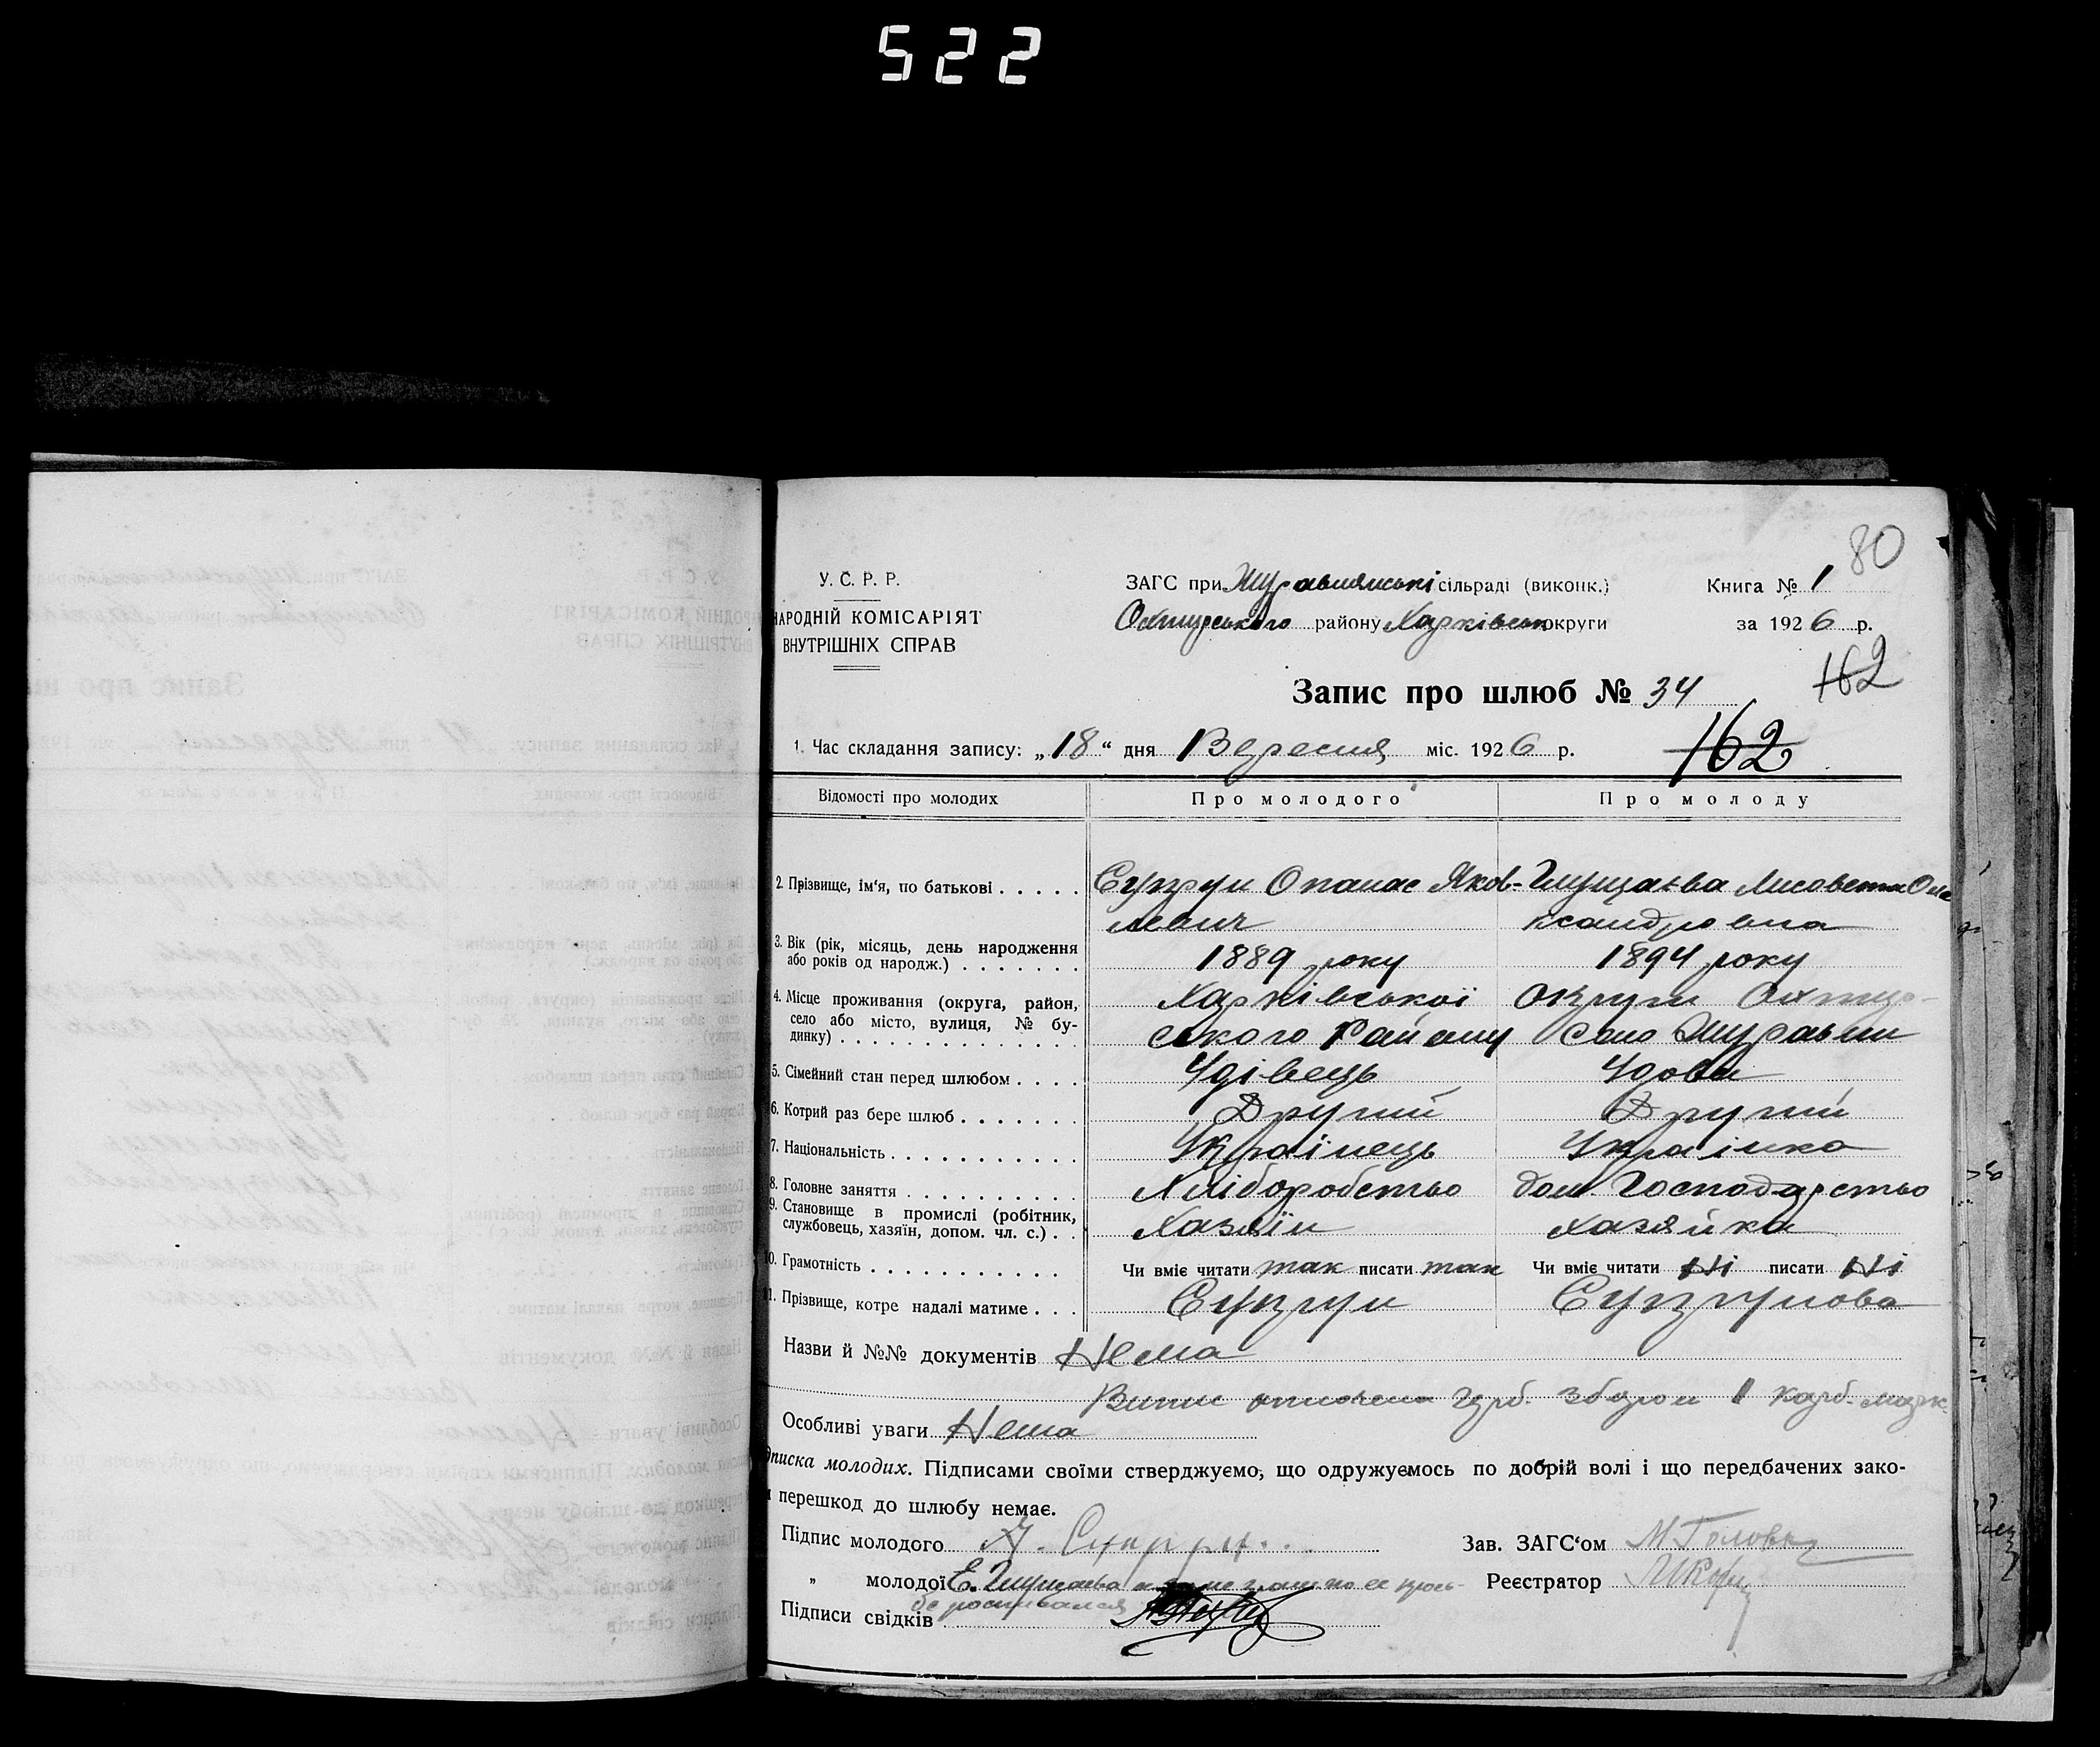 522
80
У. С. Р. Р.
НАРОДНІЙ КОМІСАРІЯТ
ВНУТРІШНІХ СПРАВ
ЗАГС при Журавлянські сільраді (виконк.)
Охтирського району Харківськ округи
Книга № 1
за 1926 р.
162
Запис про шлюб № 34
1. Час складання запису: „18“ дня Вересня міс. 1926 р.
162
Відомості про молодих Про молодого Про молоду
2. Прізвище, ім‘я, по батькові . . . . . Супрун Опанас Яков- Глущаєва Лисовета Оле
левич ксандровна
3. Вік (рік, місяць, день народження
або років од народж.) . . . . . . . 1889 року 1894 року
4. Місце проживання (округа, район, Харківської Округи Охтир-
село або місто, вулиця, № бу-
динку) . . . . . . . . . . . . . . ського Району Село Журавни
5. Сімейний стан перед шлюбом . . . . Удівець Удова
6. Котрий раз бере шлюб . . . . . . . Другий Другий
7. Національність . . . . . . . . . . . Українець Українка
8. Головне заняття . . . . . . . . . . Хліборобство дом. Господарство
9. Становище в промислі (робітник,
службовець, хазяїн, допом. чл. с.) . . Хазяїн Хазяйка
10. Грамотність . . . . . . . . . . . Чи вміє читати так писати так Чи вміє читати Ні писати Ні
11. Прізвище, котре надалі матиме . . . Супрун Супрунова
Назви й №№ документів Нема
Випис оплочена герб. збором 1 карб. марк.
Особливі уваги Нема
дписка молодих. Підписами своїми стверджуємо, що одружуємось по добрій волі і що передбачених зако-
перешкод до шлюбу немає.
Підпис молодого Супрун
Зав. ЗАГС‘ом М Головк
„ молодої Е. Глущаева а за не грам по ее прось-
бе росписался
Реєстратор
Підписи свідків